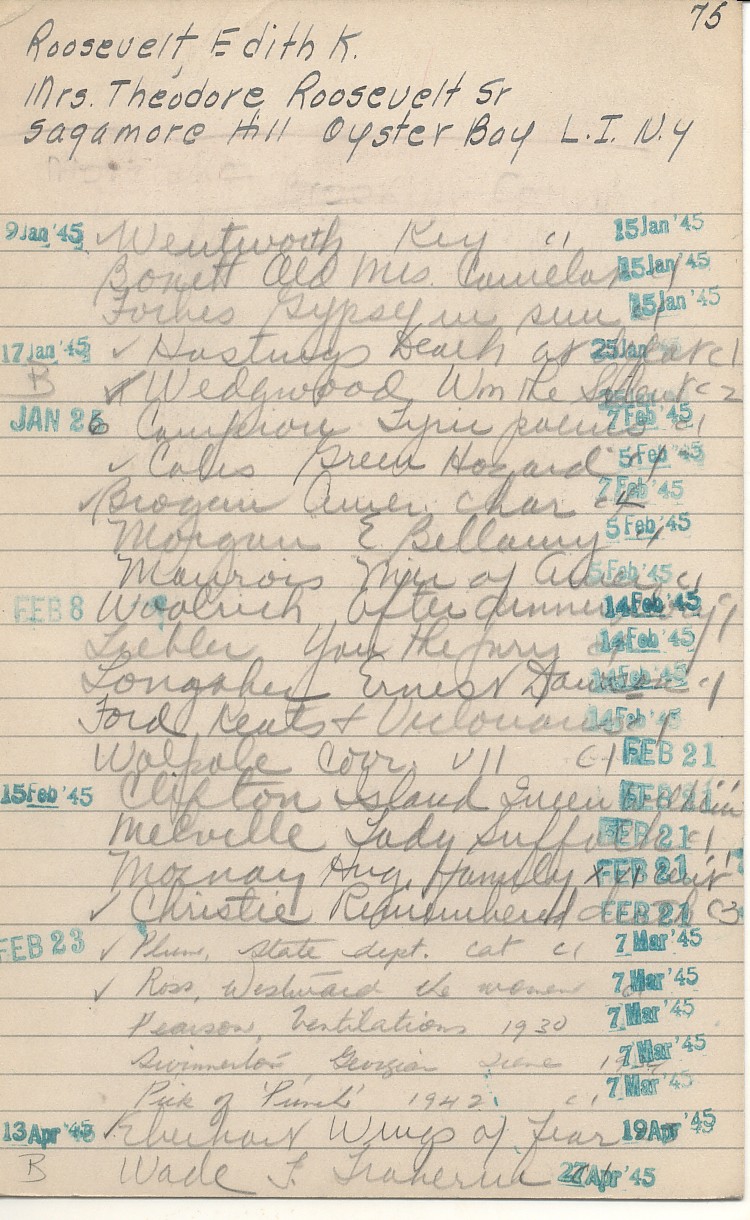 75
Roosevelt, Edith K.
Mrs. Theodore Roosevelt Sr
Sagamore Hill Oyster Bay L.I. N.Y
9 Jan '45 Wentworth Key c1 15 Jan '45
Bonett Old Mrs. Camelot 15 Jan '45
Forbes Gypsy in sun 15 Jan '45
17 Jan '45 ✓ Hastings Death at c1 25 Jan
B Wedgwood Won the c2
JAN 26 Campion Lyric poems c1 7 Feb '45
✓ Coles Green Hazard 5 Feb '45
✓ Brogan Amer. char 7 Feb '45
Morgan E Bellamy 5 Feb '45
Maurois Men of c1 5 Feb '45
FEB 8 Woolrich After dinner 14 Feb '45
Loebler You the jury 14 Feb '45
Longaker Ernest Dowson c1 14 Feb '45
Ford Keats & Victorians 14 Feb '45
Walpole Corr. V11 c1 FEB 21
15 Feb '45 Clifton Island Queen FEB 21
Melville Lady Suffolk c1 FEB 21
Mornay Hug. Family FEB 21
✓ Christie Remembered death c3 FEB 21
FEB 23 ✓ Plum, State dept. cat c1 7 Mar '45
✓ Ross, Westward the women 7 Mar '45
Pearson, Ventilations 1930 7 Mar '45
Swinnerton Georgian 7 Mar '45
Pick of 'Punch' 1942 c1 7 Mar '45
13 Apr '45 ✓ Eberhart Wings of fear 19 Apr '45
B Wade F. Traverne 27 Apr '45